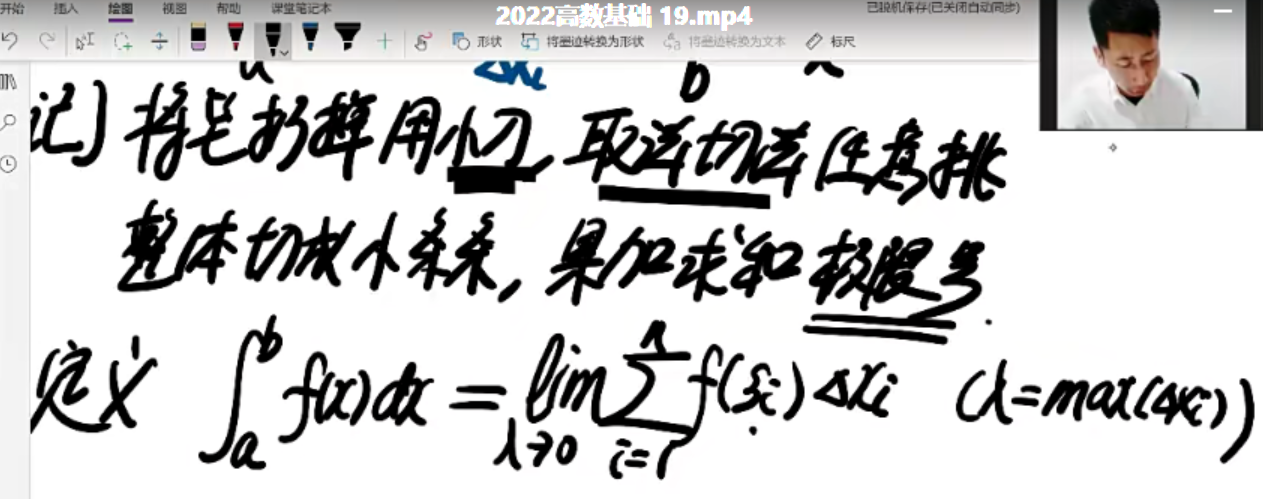 开始 插入 绘图 视图 帮助 课堂笔记本
2022高数基础 19.mp4
已脱机保存(已关闭自动同步)
形状 将墨迹转换为形状 将墨迹转换为文本 标尺
a Δxi b x
记] 将笔扔掉用小刀,取送切送任意挑
整体切成小条条,累加求和极限号.
定义 ∫_a^b f(x)dx = lim_{λ→0} ∑_{i=1}^n f(ξi)Δxi (λ=max(Δxi))